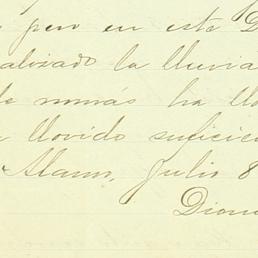 pero en este D
alizado la lluvia
de minás ha llo
llovido suficie
Alamos, Julio 8
Dion